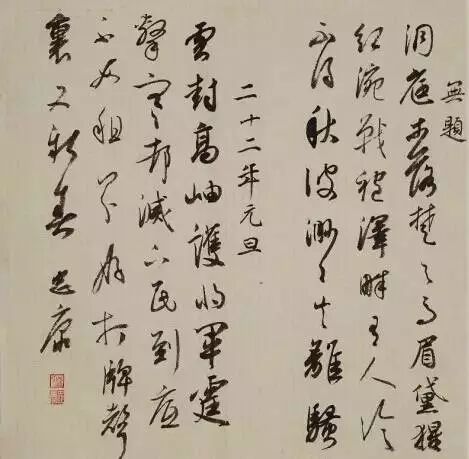 無題
洞庭木落楚天高眉黛猩
紅涴戰袍澤畔有人吟
不得秋波渺々失離騷
二十二年元旦
雲封高岫護將軍霆
擊寒邨滅下民到底
不如租界好打牌聲
裏又新春 忠康